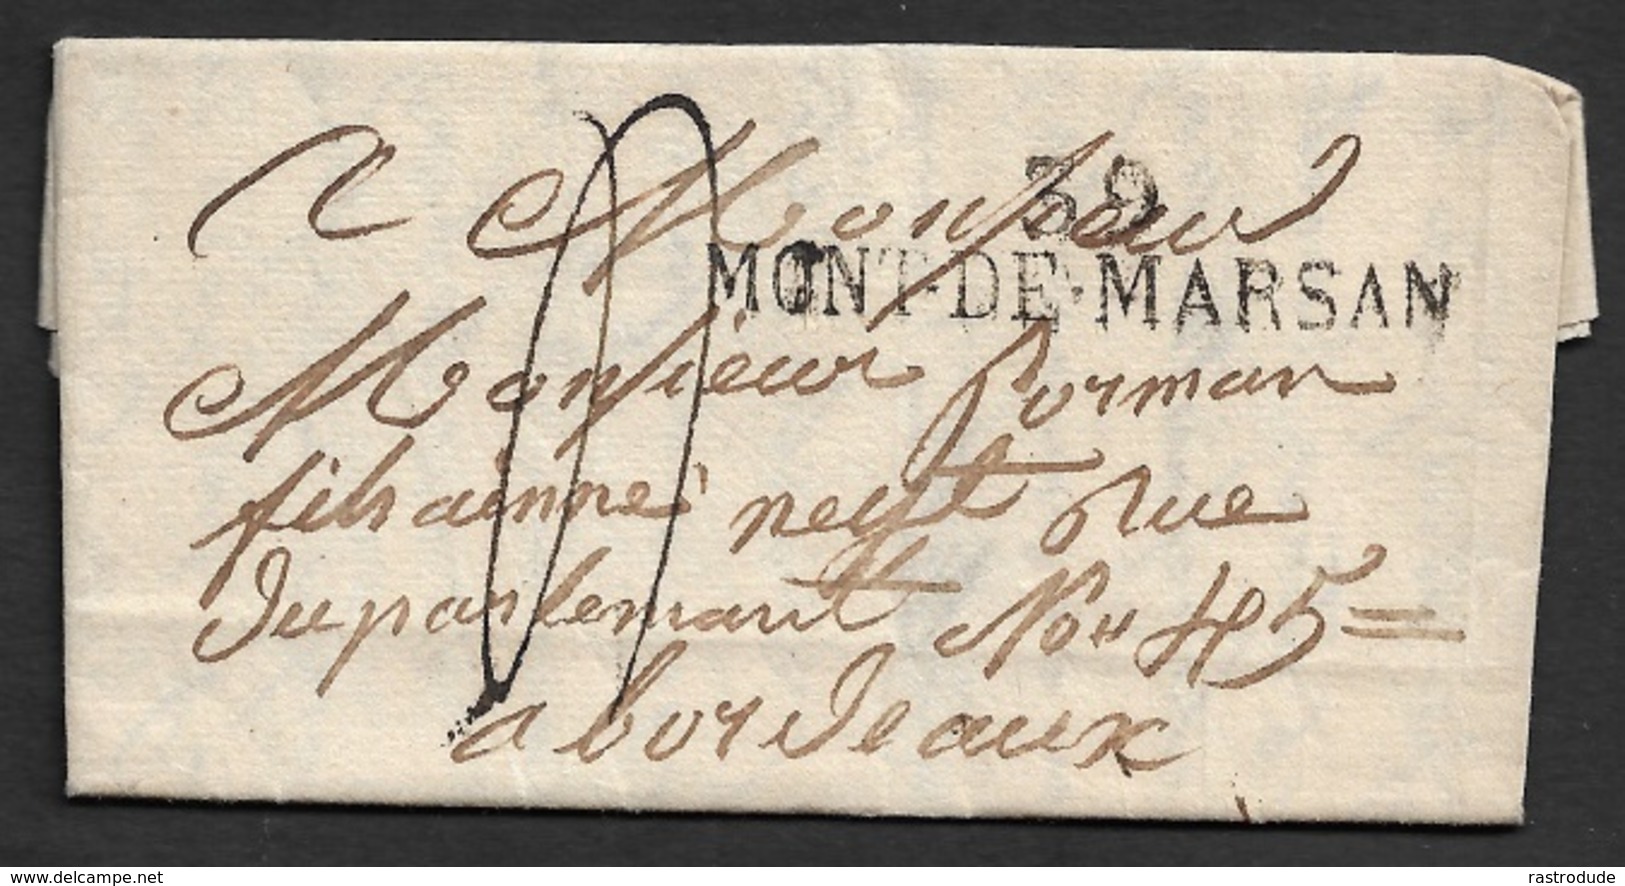 A Monsieur
39
MONT-DE-MARSAN
Monsieur Dorman
fils ainné negt Rue
Du parlemant No 45 =
a bordeaux
www.delcampe.net
rastrodude